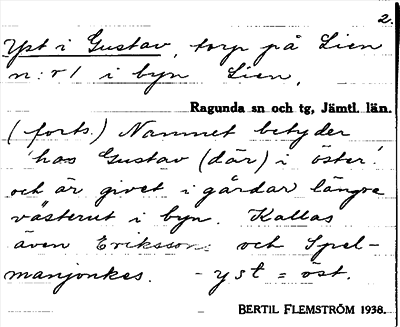 2.
Yst i Gustav, torp på Lien
n:r 1 i byn Lien.
Ragunda sn och tg, Jämtl. län.
(forts.) Namnet betyder
'hos Gustav (där) i öster'
och är givet i gårdar längre
västerut i byn. Kallas
även Eriksson: och Spel-
manjonkes. - yst = öst.
BERTIL FLEMSTRÖM 1938.